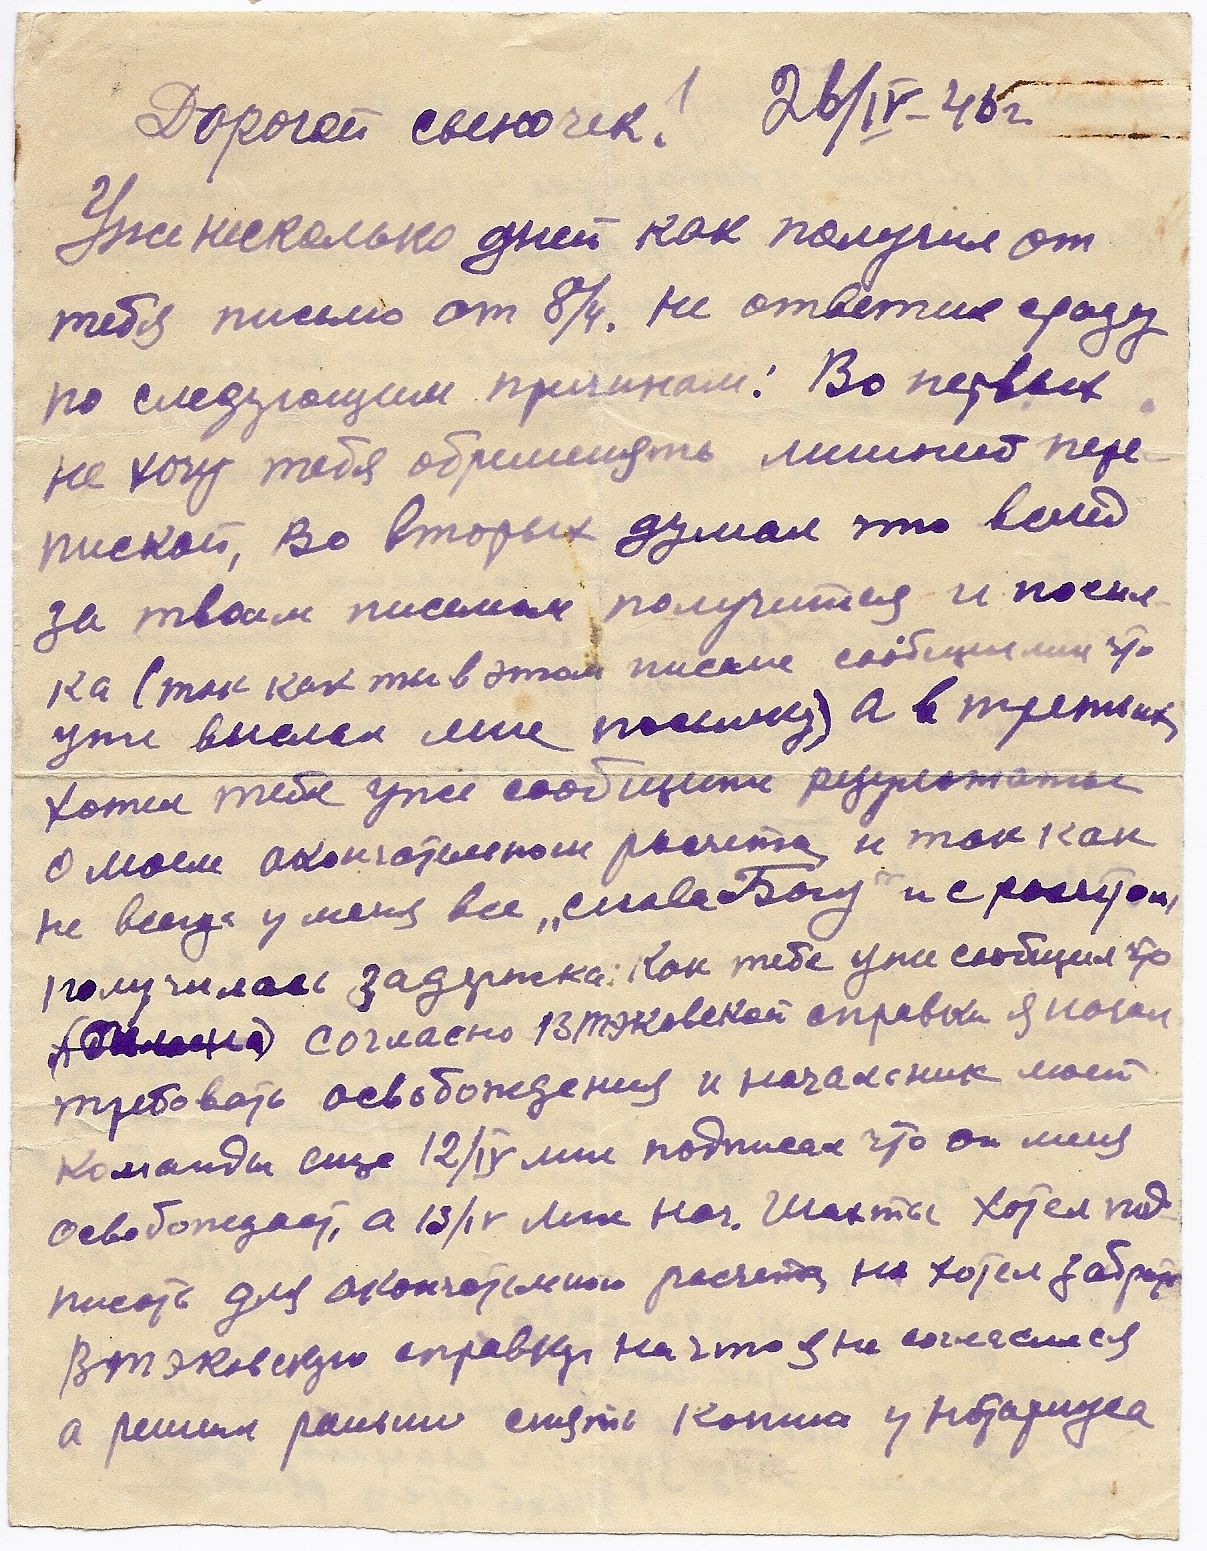 Дорогой сыночек! 26/IV-46 г.
Уже несколько дней как получил от
тебя письмо от 8/4. Не ответил сразу
по следующим причинам: Во первых
не хочу тебя обременять лишней пере-
пиской, Во вторых думал что вслед
за твоим письмом получится и посыл-
ка (так как ты в этом письме сообщил мне что
уже выслал мне посылку) А в третьих,
хотел тебе уже сообщить результаты
о моем окончательном расчета, и так как
не всегда у меня все „слава Богу" и с расчётом,
получилась задержка: Как тебе уже сообщил что
согласно ВТЭКовской справки я начал
требовать освобождения и начальник моей
команды еще 12/IV мне подписал что он меня
освобождает, а 13/IV мне нач. Шахты хотел под-
писать для окончательного расчета, но хотел забрать
ВТЭКовскую справку, на что я не согласился
а решил раньше снять копию у нотариуса